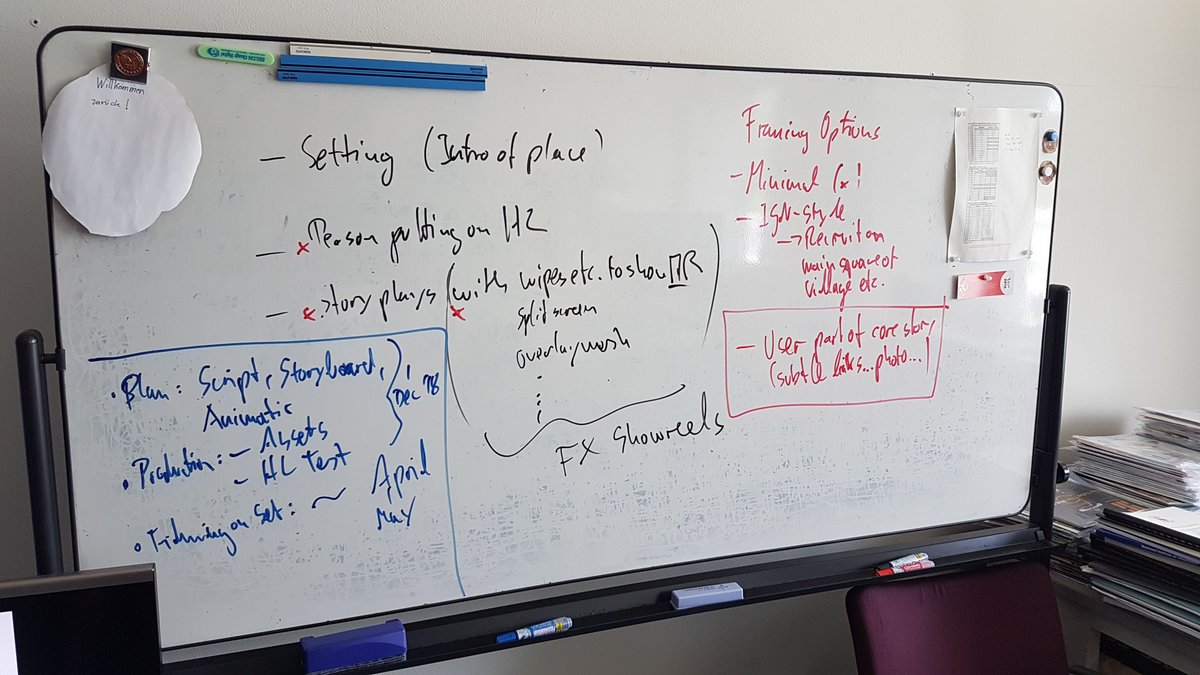 Willkommen
zurück!
– Setting (Intro of place)
– x Reason putting on HL
– x Story plays (with wipes etc. to show MR
x
split screen
overlay mesh
FX Showreels
• Plan: Script, Storyboard,
Animatic
Dec '18
• Production: – Assets
– HL Test
• Filming on Set: ~ April
May
Framing Options
– Minimal
– IGN-style
→ Recruit on
main square of
village etc.
– User part of core story
(subtle links...photo...)